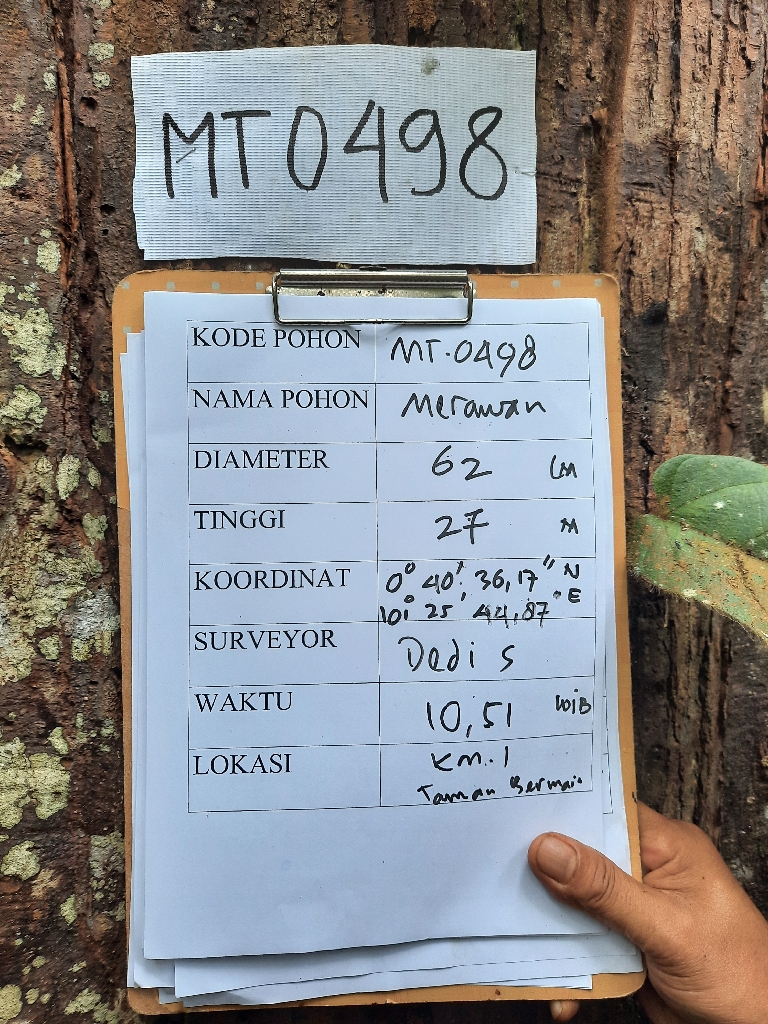 MT0498
KODE POHON MT.0498
NAMA POHON Merawan
DIAMETER 62 CM
TINGGI 27 M
KOORDINAT 0° 40' 36,17" N
101° 25' 44,87" E
SURVEYOR Dedi S
WAKTU 10,51 WIB
LOKASI KM.1
Taman Bermain